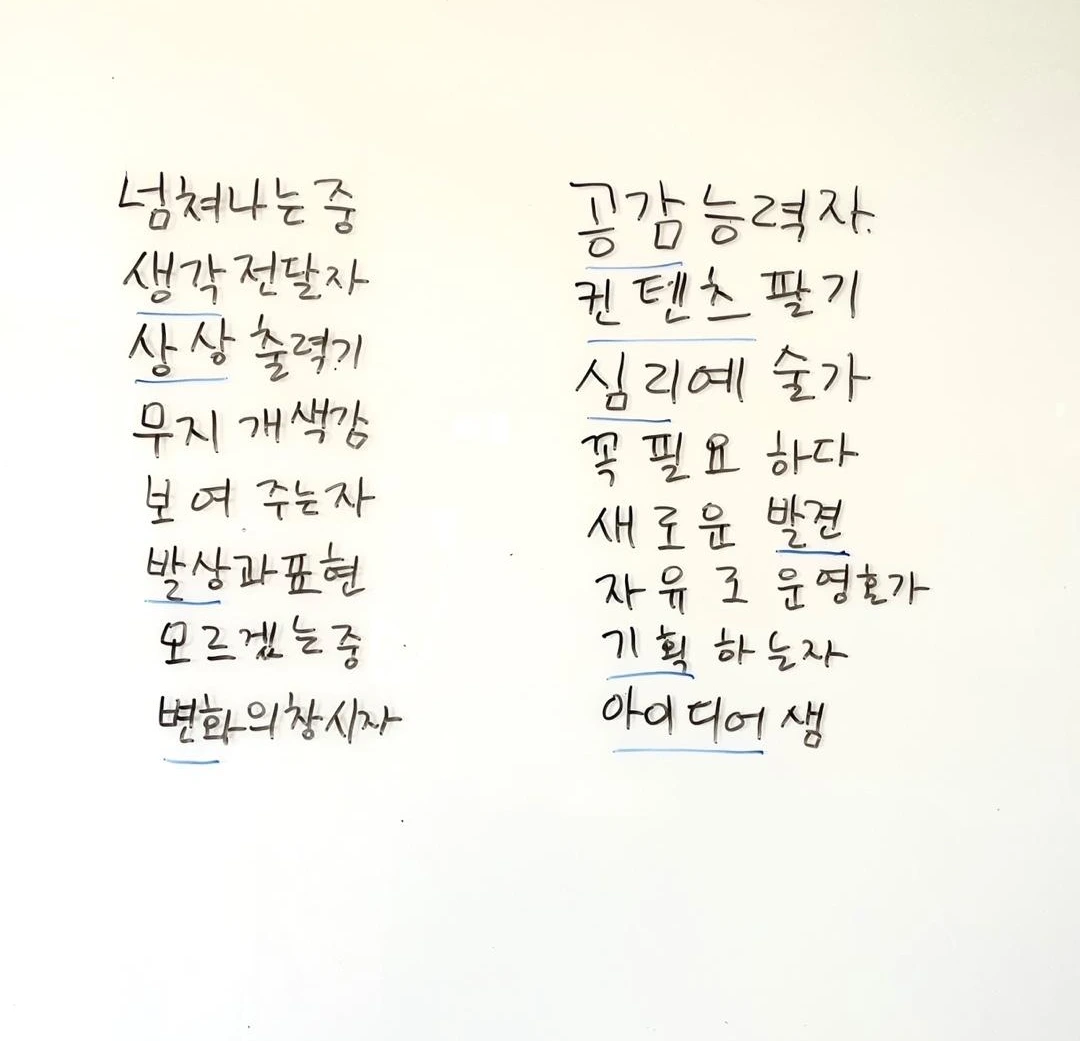 넘쳐나는중
생각전달자
상상 출력기
무지개색감
보여주는자
발상과표현
모르겠는중
변화의창시자
공감능력자.
컨텐츠 팔기
심리예술가
꼭 필요하다
새로운 발견
자유로운영혼가
기획하는자
아이디어샘